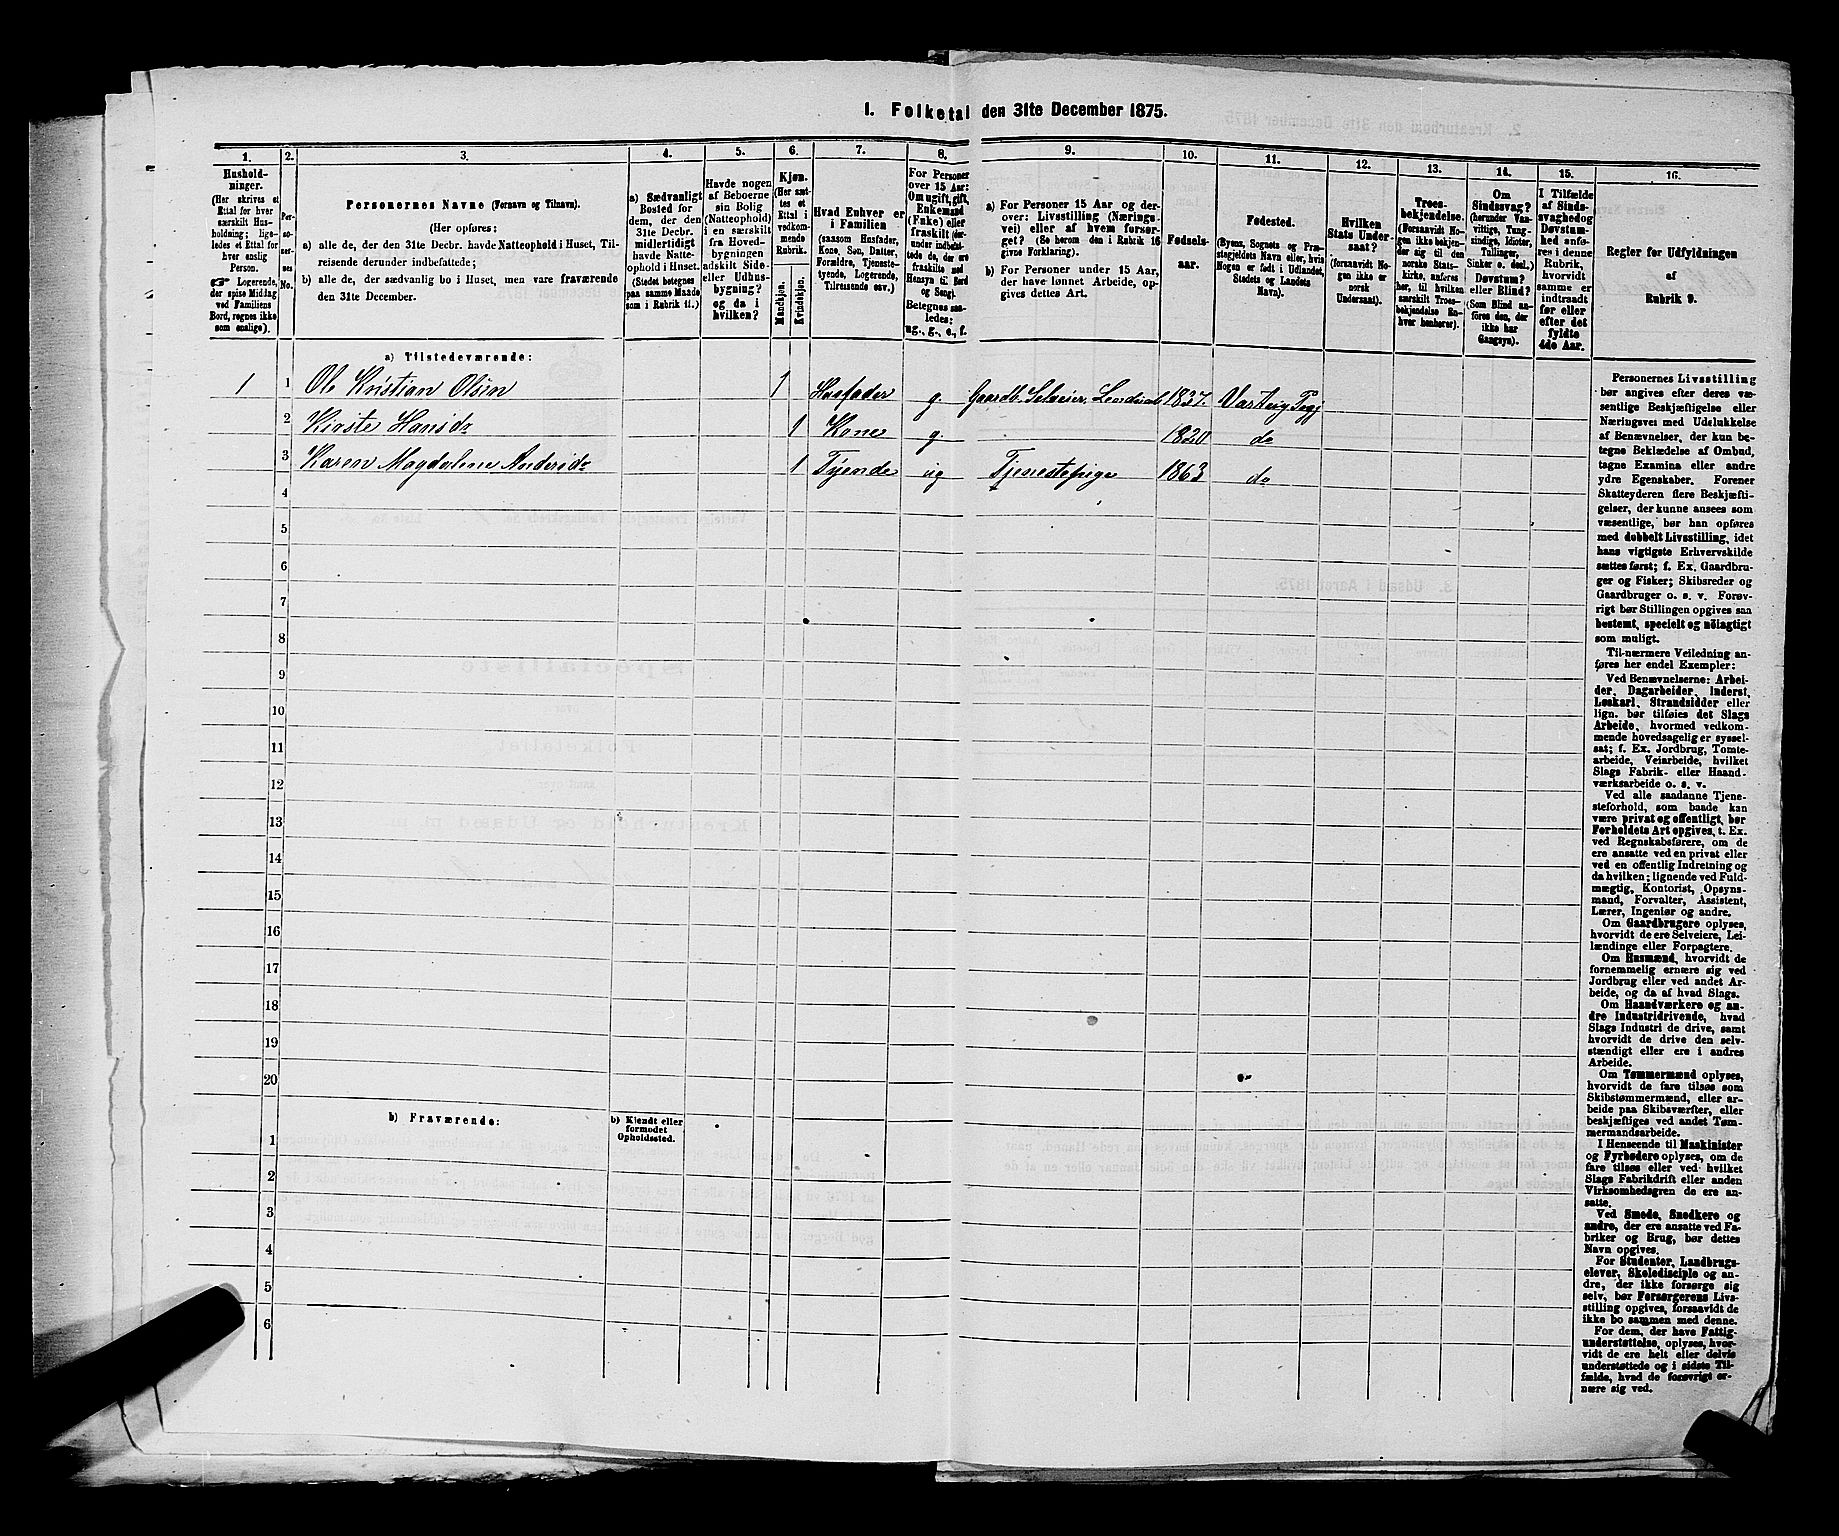 1. Folketal den 31te December 1875.
1.
2.
3.
4.
5.
6.
7.
8.
9.
10.
11.
12.
13.
14.
15.
16.
Hushold-
ninger.
(Her skrives et
Ettal for hver
særskilt Hus-
holdning; lige-
ledes et Ettal for
hver enslig
Person.
☞ Logerende,
der spise Middag
ved Familiens
Bord, regnes ikke
som enslige).
Per-
so-
ner-
nes
No.
Personernes Navne (Fornavn og Tilnavn).
(Her opføres:
a) alle de, der den 31te Decbr. havde Natteophold i Huset, Til-
reisende derunder indbefattede;
b) alle de, der sædvanlig bo i Huset, men vare fraværende
den 31te December.
a) Sædvanligt
Bosted for
dem, der den
31te Decbr.
midlertidigt
havde Natte-
ophold i Huset.
(Stedet betegnes
paa samme Maade
som i Rubrik 11.)
Havde nogen
af Beboerne
sin Bolig
(Natteophold)
i en særskilt
fra Hoved-
bygningen
adskilt Side-
eller Udhus-
bygning?
og da i
hvilken?
Kjøn.
(Her sæt-
tes et
Ettal i
vedkom-
mende
Rubrik.
Mandkjøn.
Kvindekjøn.
Hvad Enhver er
i Familien
(saasom Husfader,
Kone, Søn, Datter,
Forældre, Tjeneste-
tyende, Logerende,
Tilreisende osv.)
For Personer
over 15 Aar:
Om ugift, gift,
Enkemand
(Enke) eller
fraskilt (der-
under indbefat-
tede de, der ere
fraskilte med
Hensyn til Bord
og Seng).
Betegnes saa-
ledes:
ug., g., e., f.
a) For Personer 15 Aar og der-
over: Livsstilling (Nærings-
vei) eller af hvem forsør-
get? (Se herom den i Rubrik 16
givne Forklaring).
b) For Personer under 15 Aar,
der have lønnet Arbeide, op-
gives dettes Art.
Fødsels-
aar.
Fødested.
(Byens, Sognets og Præ-
stegjeldets Navn eller, hvis
Nogen er født i Udlandet,
Stedets og Landets
Navn).
Hvilken
Stats Under-
saat?
(foraavidt No-
gen ikke er
norsk
Undersaat).
Troes-
bekjendelse.
(Forsaavidt No-
gen ikke bekjen-
der sig til den
norske Stats-
kirke, anføres
her, til hvilken
særskilt Troes-
bekjendelse En-
hver henhører).
Om
Sindssvag?
(herunder Van-
vittige, Tung-
sindige, Idioter,
Tullinger,
Sinker o. desl.)
Døvstum?
eller Blind?
(Som Blind an-
føres den, der
ikke har
Gangsyn).
I Tilfælde
af Sinds-
svaghed og
Døvstum-
hed anfø-
res i denne
Rubrik,
hvorvidt
samme er
indtraadt
før eller
efter det
fyldte
4de Aar.
Regler for Udfyldningen
af
Rubrik 9.
a) Tilstedeværende:
1 1 Ole Kristian Olsen 1 Husfader g. Gaardb. Selveier, 1837. Varteig Pgj
2 Kirste Hansdr 1 Kone g. 1820 do
3 Karen Magdalene Andersdr 1 Tyende ug Tjenestepige 1863 do
4
5
6
7
8
9
10
11
12
13
14
15
16
17
18
19
20
b) Fraværende:
b) Kjendt eller
formodet
Opholdssted.
1
2
3
4
5
6
Personernes Livsstilling
bør angives efter deres væ-
sentlige Beskjæftigelse eller
Næringsvei med Udelukkelse
af Benævnelser, der kun be-
tegne Beklædelse af Ombud,
tagne Examina eller andre
ydre Egenskaber. Forener
Skatteyderen flere Beskjæfti-
gelser, der kunne ansees som
væsentlige, bør han opføres
med dobbelt Livsstilling, idet
hans vigtigste Erhvervskilde
sættes først; f. Ex. Gaardbru-
ger og Fisker; Skibsreder og
Gaardbruger o. s. v. Forøv-
rigt bør Stillingen opgives saa
bestemt, specielt og nöiagtigt
som muligt.
Til nærmere Veiledning an-
føres her endel Exempler:
Ved Benævnelserne: Arbei-
der, Dagarbeider, Inderst,
Løskarl, Strandsidder eller
lign. bør tilføies det Slags
Arbeide, hvormed vedkom-
mende hovedsagelig er syssel-
sat; f. Ex. Jordbrug, Tomte-
arbeide, Veiarbeide, hvilket
Slags Fabrik- eller Haand-
værksarbeide o. s. v.
Ved alle saadanne Tjene-
steforhold, som baade kan
være privat og offentligt, bør
Forholdets Art opgives, t. Ex.
ved Regnskabsførere, om de
ere ansatte ved en privat eller
ved en offentlig Indretning og
da hvilken; lignende ved Fuld-
mægtig, Kontorist, Opsyns-
mand, Forvalter, Assistent,
Lærer, Ingeniør og andre.
Om Gaardbrugere oplyses,
hvorvidt de ere Selveiere, Lei-
lændinge eller Forpagtere.
Om Husmænd, hvorvidt de
fornemmelig ernære sig ved
Jordbrug eller ved andet Ar-
beide, og da af hvad Slags.
Om Haandværkere og an-
dre Industridrivende, hvad
Slags Industri de drive, samt
hvorvidt de drive den selv-
stændigt eller ere i andres
Arbeide.
Om Tømmermænd oplyses,
hvorvidt de fare tilsøs som
Skibstømmermænd, eller ar-
beide paa Skibsværfter, eller
beskjæftiges ved andet Tøm-
mermandsarbeide.
I Henseende til Maskinister
og Fyrbødere oplyses, om de
fare tilsøs eller ved hvilket
Slags Fabrikdrift eller anden
Virksomhedsgren de ere an-
satte.
Ved Smede, Snedkere og
andre, der ere ansatte ved Fa-
briker og Brug, bør dettes
Navn opgives.
For Studenter, Landbrugs-
elever, Skoledisciple og an-
dre, der ikke forsørge sig
selv, bør Forsørgerens Livs-
stilling opgives, forsaavidt de
ikke bo sammen med denne.
For dem, der have Fattig-
understøttelse, oplyses, hvor-
vidt de ere helt eller delvis
understøttede og i sidste Til-
fælde, hvad de forøvrigt er-
nære sig ved.